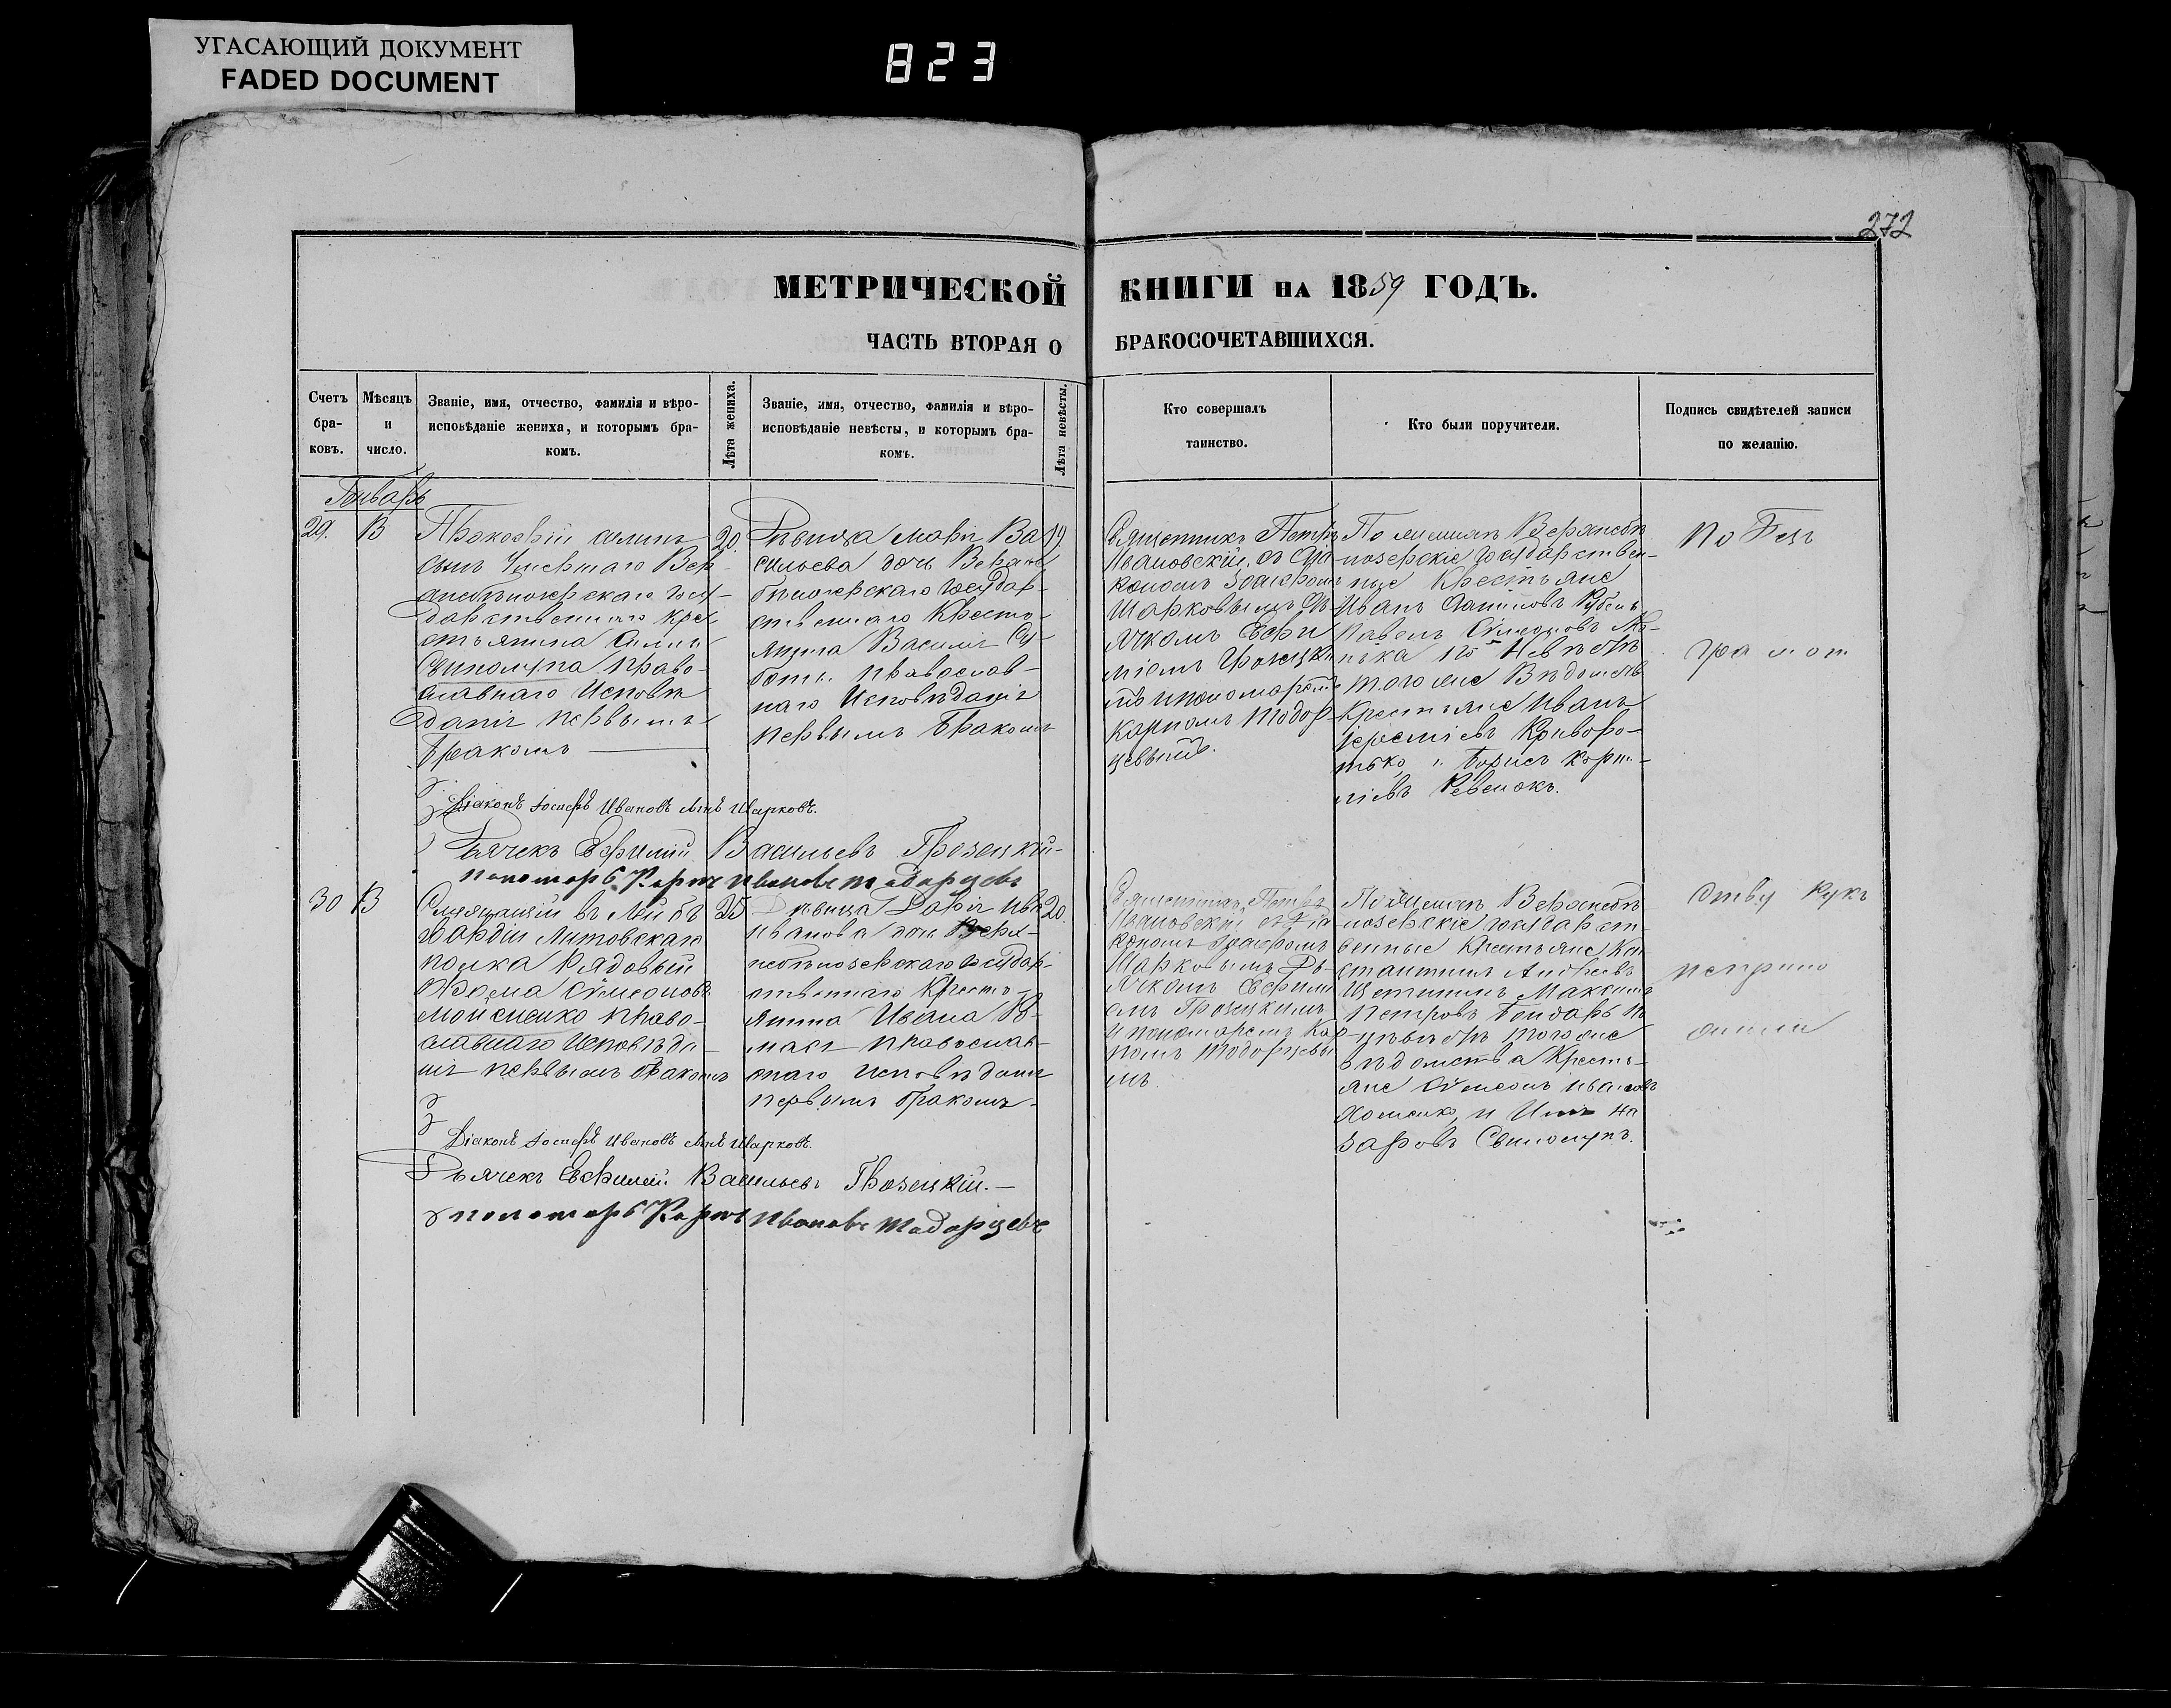 УГАСАЮЩИЙ ДОКУМЕНТ
FADED DOCUMENT
823
272
МЕТРИЧЕСКОЙ КНИГИ НА 1859 ГОДЪ.
ЧАСТЬ ВТОРАЯ О БРАКОСОЧЕТАВШИХСЯ.
Счетъ
бра-
ковъ.
Мѣсяцъ
и
число.
Званіе, имя, отчество, фамилія и вѣро-
исповѣданіе жениха, и которымъ бра-
комъ.
Лѣта жениха.
Званіе, имя, отчество, фамилія и вѣро-
исповѣданіе невѣсты, и которымъ бра-
комъ.
Лѣта невѣсты.
Кто совершалъ
таинство.
Кто были поручители.
Подпись свидѣтелей записи
по желанію.
Январь
29.
В
Прокофій
сынъ Умершаго Вер
государ
дарственнаго кре
стьянина
Свиногупа право-
славнаго Исповѣ
даніи первымъ
бракомъ
20.
Дѣвица Марія Ва
сильева дочь Верхне
бѣлозерскаго Государ-
ственнаго Кресть-
янина Василія
православ-
наго Исповѣданія
первымъ бракомъ
19
Священникъ Петръ
Ивановскій, съ Діа
кономъ Іосифомъ
Шарковымъ Дь
ячкомъ Ефи
міемъ Грозецки
мъ и пономаремъ
Карпомъ Тодор
цевымъ.
По женихѣ Верхнебѣ
лозерскіе государствен-
ные Крестьяне
Иванъ
Павелъ Симеоновъ
по Невѣстѣ
того же Вѣдомств
Крестьяне Иванъ
Іереміевъ Криворо-
тько, и Борисъ Корни-
ліевъ Ревенокъ.
По Без
грамот
Діаконъ Іосифъ Ивановъ сынъ Шарковъ.
Дьячекъ Ефимій Васильевъ Грозецкій-
пономарь Карпъ Ивановъ Тодорцевъ
30
В
Служащій въ Лейбъ
Гвардіи Литовскаго
полка Рядовый
Ѳома Симеоновъ
Моисеенко право-
славнаго Исповѣда-
ніи первымъ бракомъ
25
Дѣвица Дарія
Иванова дочь Верх-
небѣлозерскаго Государ-
ственнаго Кресть-
янина Ивана
православ-
наго исповѣданія
первымъ бракомъ.
20.
Священникъ Петръ
Ивановскій съ Діа
кономъ Іосифомъ
Шарковымъ Дь-
ячкомъ Ефимі
емъ Грозецкимъ
и пономаремъ Кар
помъ Тодорцевы
мъ.
По Женихѣ Верхнебѣ
лозерскіе государст-
венные Крестьяне Кон
стантинъ Андреевъ
Щетининъ Максимъ
Петровъ Бондарь По
невѣстѣ того же
вѣдомства Кресть-
яне Симеонъ Ивановъ
Хоменко, и На
заровъ Свиногупъ.
ству рукъ
неприло
жили
Діаконъ Іосифъ Ивановъ сынъ Шарковъ.
Дьячекъ Ефимій Васильевъ Грозецкій.
пономарь Карпъ Ивановъ Тодорцевъ